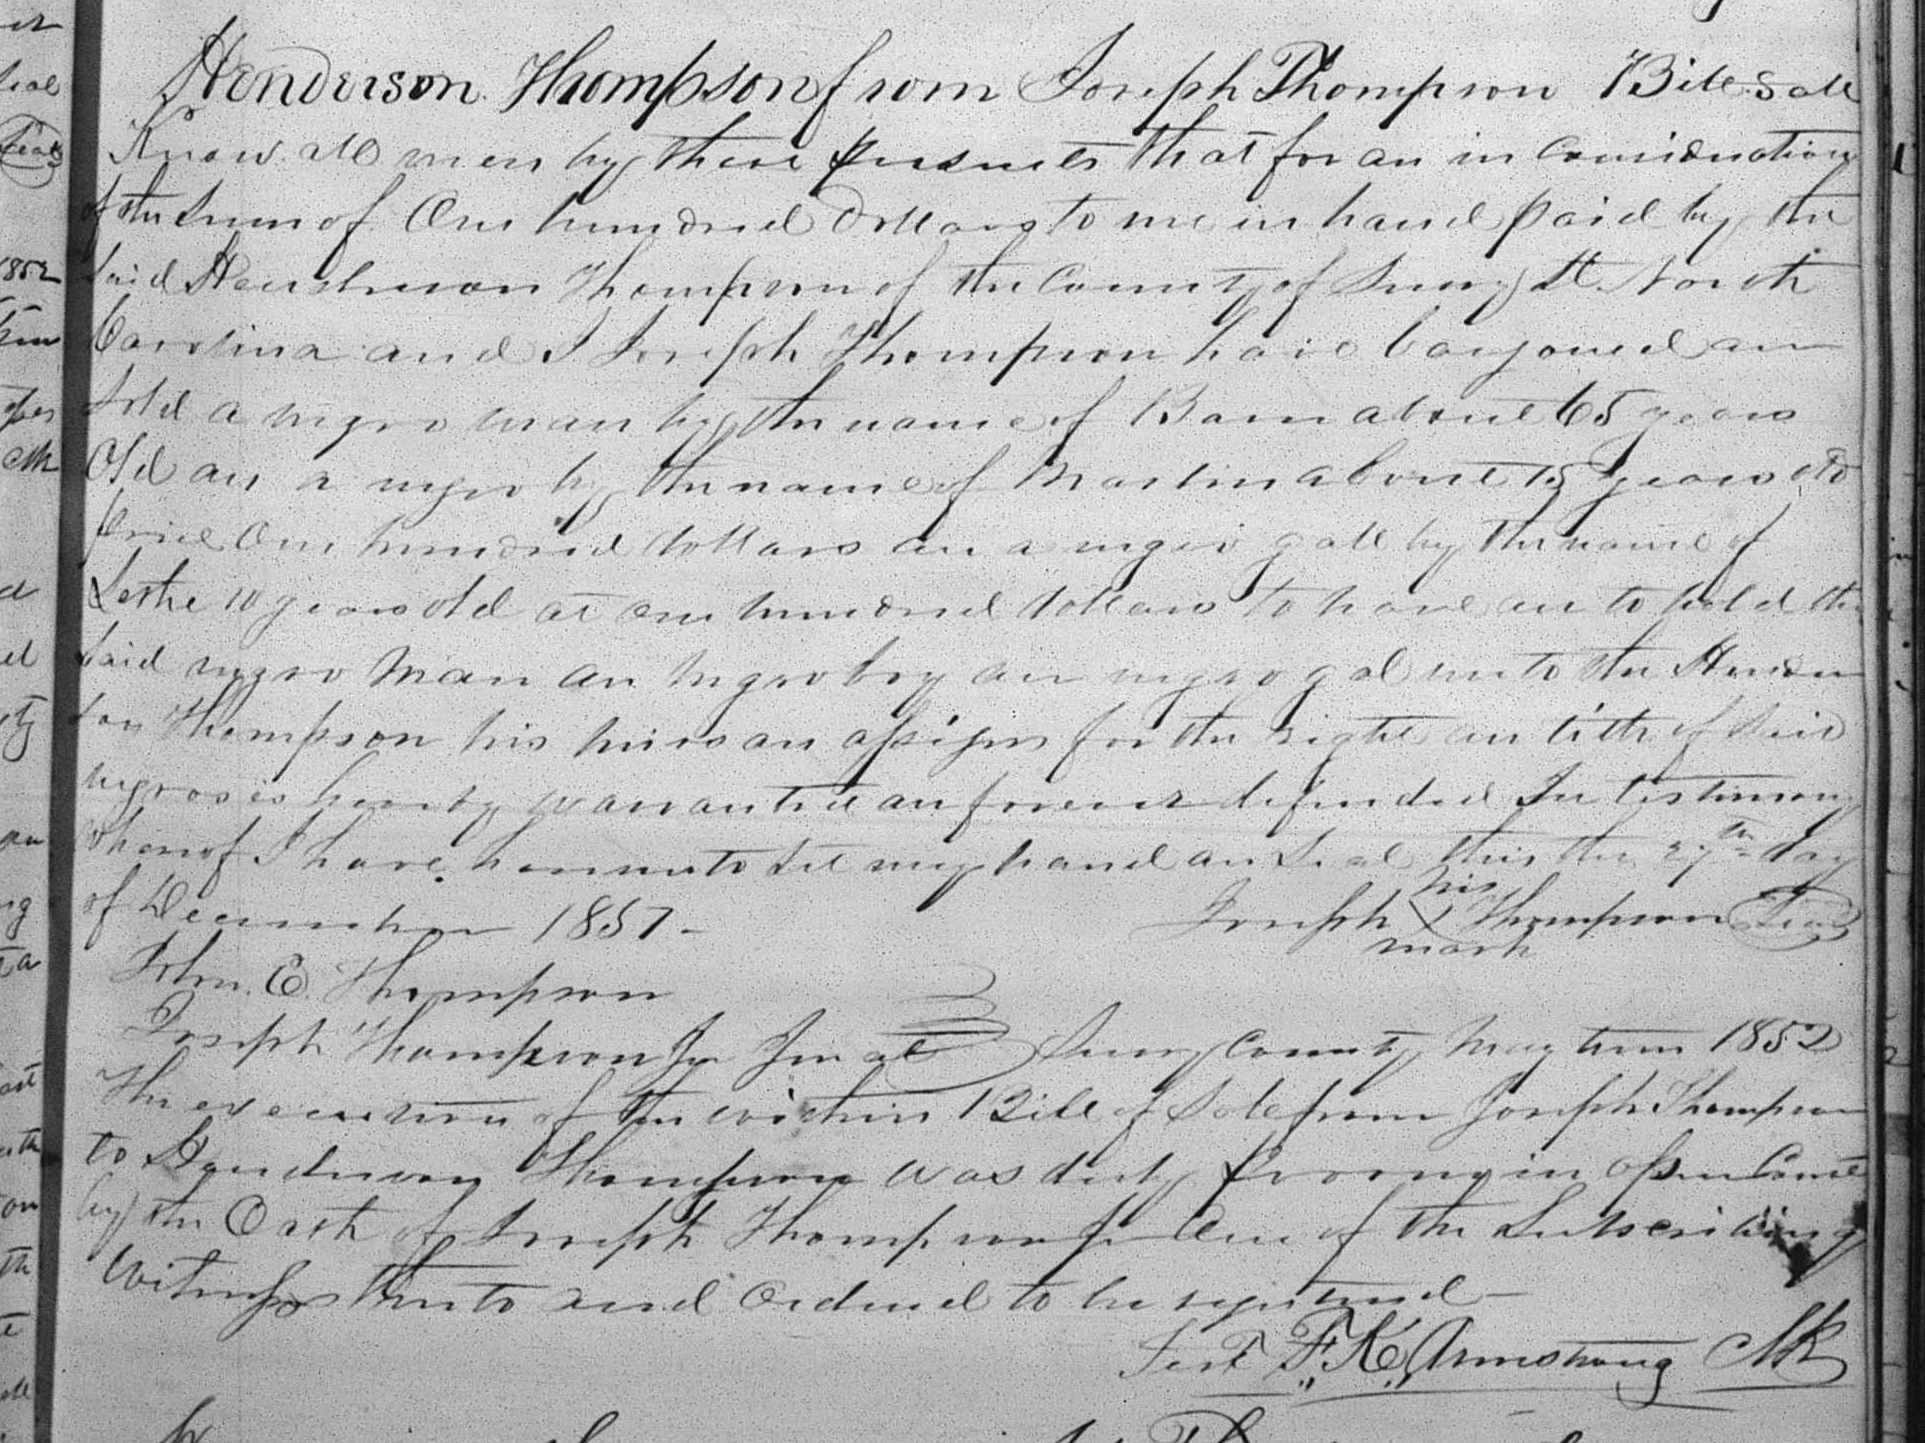 Henderson Thompson from Joseph Thompson Bill Sale
Know all men by these presents that for an in Consideration
of the Sum of One hundred Dollars to me in hand paid by the
Said Henderson Thompson of the County of Surry St. North
Carolina and I Joseph Thompson have bargoned an
Sold a negro man by the name of Bam about 65 years
Old an a negro by the name of Martin about 15 years old
price One hundred dollars an a negro gall by the name of
10 years old at one hundred dollars to have an to hold the
Said negro man an negro boy an negro gal unto the Hender
son Thompson his heirs an assigns for the right an title of Said
negroes is hereby warranted an forever defended In testimony
whereof I have hereunto set my hand an Seal this the 27th day
of December 1851 - Joseph his X mark Thompson Seal
John. E. Thompson
Joseph Thompson Jr Jurat Surry County May term 1852
The execution of the within Bill of Sale from Joseph Thompson
to Henderson Thompson was duly in open Court
by the Oath of Joseph Thompson Jr One of the Subscribing
Witnesses thereto and Ordered to be registered -
Test F. K. Armstrong Clk